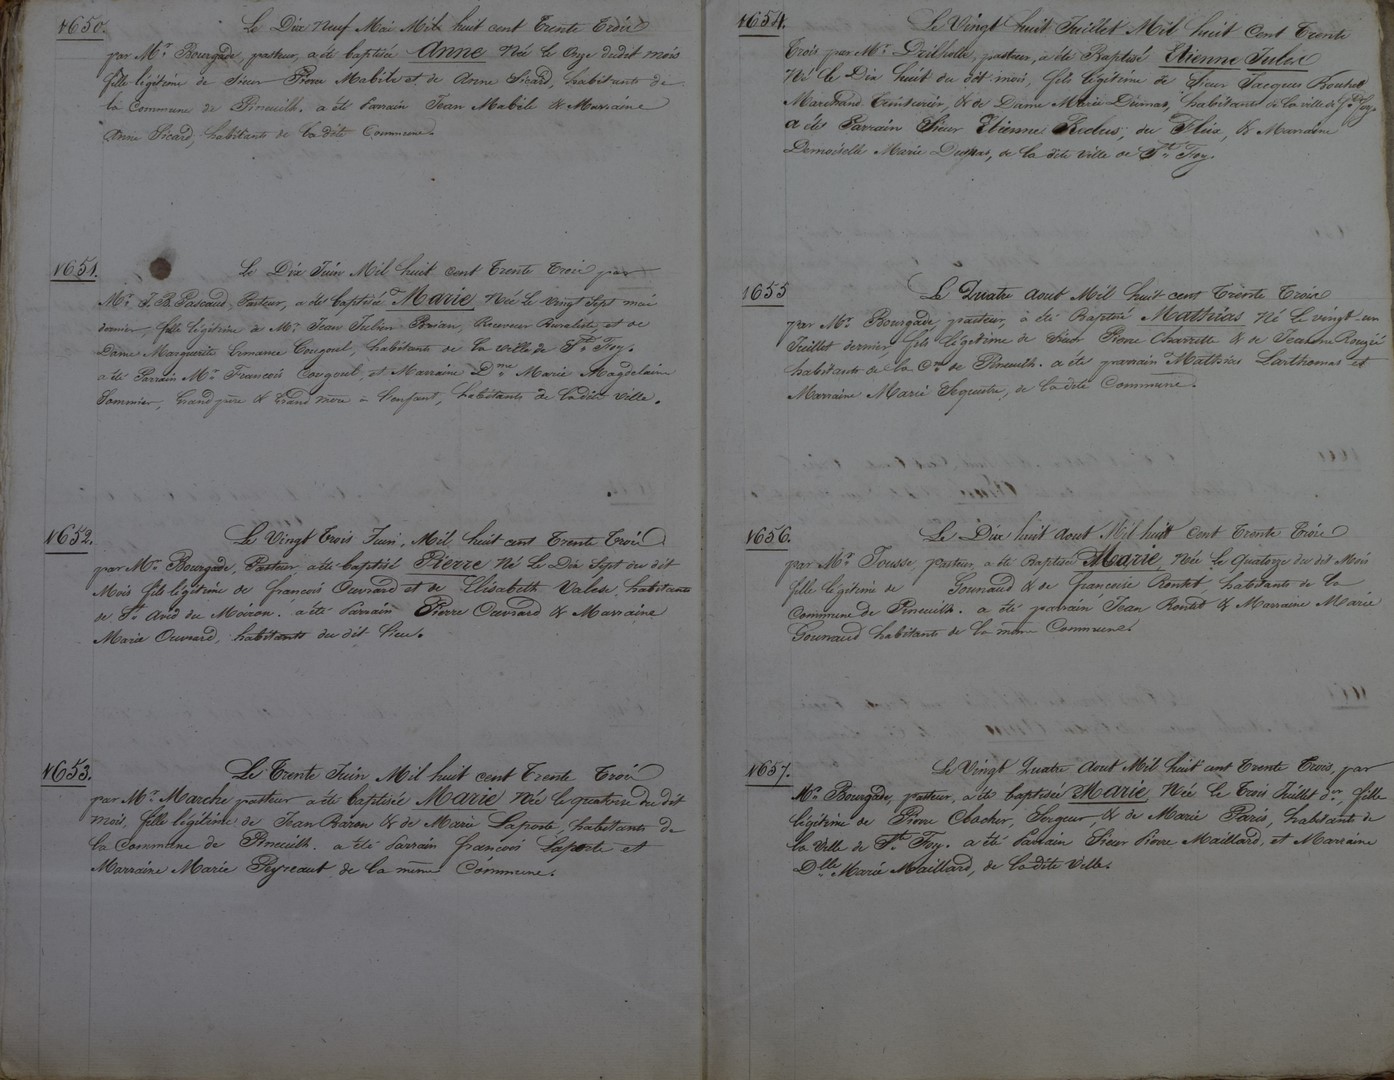 1650.
Le Dix Neuf Mai Mil huit cent Trente Trois
par Mr. Bourgade, pasteur, a été baptisée Anne Née le Onze dudit mois
fille légitime de Sieur Pierre Mabile et de Anne Sicard, habitants de
la Commune de Pineuilh. a été Parain Jean Mabile & Marraine
Anne Sicard, habitants de la dite Commune.
1651.
Le Dix Juin Mil huit cent Trente Trois par
Mr. J. B. Pascaud, Pasteur, a été baptisée Marie Née Le Vingt Sept mai
dernier, fille légitime de Mr. Jean Julien Brian, Receveur Ruraliste, et de
Dame Marguerite Ermance Cougoul, habitants de la ville de Ste. Foy.
a été Parrain Mr. François Cougoul, et Marraine Dme Marie Magdelaine
Sommier, Grand père & Grand mère à l'enfant, habitants de la dite ville.
1652.
Le Vingt Trois Juin, Mil huit cent Trente Trois
par Mr. Bourgade, Pasteur, a été baptisé Pierre Né Le Dix Sept du dit
Mois fils légitime de françois Ouvrard et de Elisabeth Valede, habitants
de St. Avid du Moiron. a été Parrain Pierre Ouvrard & Marraine
Marie Ouvrard, habitants du dit lieu.
1653.
Le Trente Juin Mil huit cent Trente Trois
par Mr. Marche pasteur a été baptisée Marie Née le quatorze du dit
mois, fille légitime de Jean Baron & de Marie Laporte, habitants de
la Commune de Pineuilh. a été Parrain françois Laporte et
Marraine Marie Peyreaut de la même Commune.
1654.
Le Vingt huit Juillet Mil huit Cent Trente
Trois par Mr. Drilholle, pasteur, a été Baptisé Etienne Jules
Né le Dix huit du dit mois, fils légitime de Sieur Jacques Rouhet
Marchand Teinturier, & de Dame Marie Dumas, habitans de la ville de Ste. Foy.
a été Parrain Sieur Etienne Reclus, du Fleix, & Marraine
Demoiselle Marie Dumas, de la dite Ville de Ste. Foy.
1655
Le Quatre aout Mil huit cent Trente Trois
par Mr. Bourgade, pasteur, a été Baptisé Mathias Né le vingt un
Juillet dernier, fils légitime de Sieur Pierre Charrille & de Jeanne Rougié
habitants de la Cne. de Pineuilh. a été parrain Mathias Larthomas et
Marraine Marie Sequestre, de la dite Commune.
1656.
Le Dix huit aout Mil huit cent Trente Trois
par Mr. Jousse, pasteur, a été Baptisée Marie, Née Le Quatorze du dit Mois
fille légitime de Gouraud & de françoise Rontet, habitants de la
Commune de Pineuilh. a été parrain Jean Rontet & Marraine Marie
Gouraud habitants de la même Commune.
1657.
Le Vingt Quatre aout Mil huit cent Trente Trois, par
Mr. Bourgade, pasteur, a été baptisée Marie Née le Trois Juillet der, fille
légitime de Pierre Cbacher, Sergeur, & de Marie Paris, habitants de
la Ville de Ste. Foy. a été Parrain Sieur Pierre Maillard, et Marraine
Dlle. Marie Maillard, de la dite Ville.